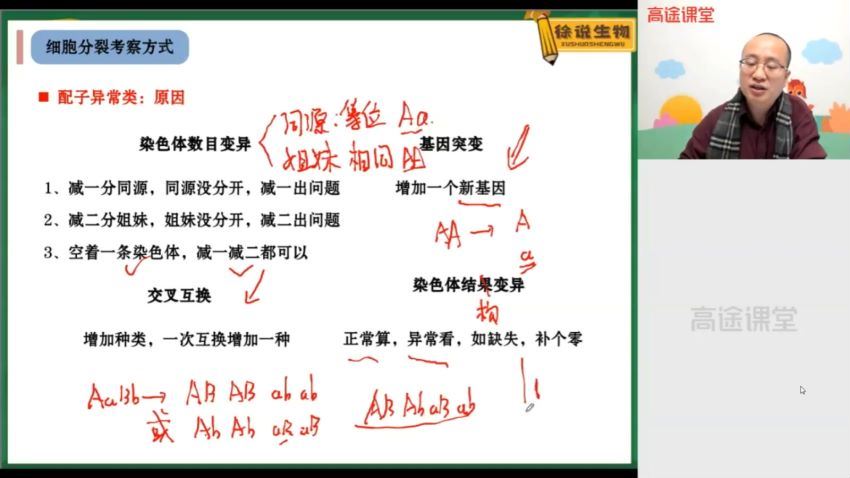 细胞分裂考察方式
徐说生物
XUSHUOSHENGWU
高途课堂
配子异常类：原因
同源：等位 Aa
染色体数目变异
基因突变
姐妹 相同 AA
1、减一分同源，同源没分开，减一出问题
增加一个新基因
2、减二分姐妹，姐妹没分开，减二出问题
AA → A
a
3、空着一条染色体，减一减二都可以
交叉互换
染色体结果变异
构
增加种类，一次互换增加一种
正常算，异常看，如缺失，补个零
高途课堂
AaBb → AB AB ab ab
AB Ab aB ab
或 Ab Ab aB aB